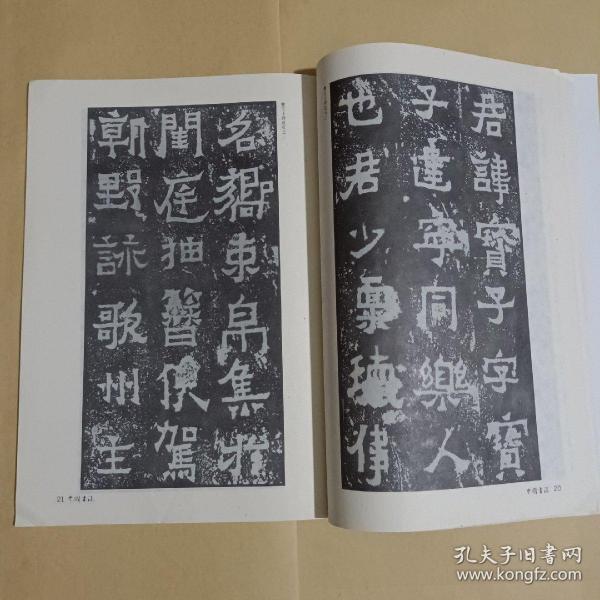 君諱寶子字寶
子建寧同樂人
也君少稟瓌偉
名鄉束帛集於
閨庭抽簪俟駕
朝野詠歌州主
中國書法 20
21 中國書法
孔夫子旧书网
www.kongfz.com